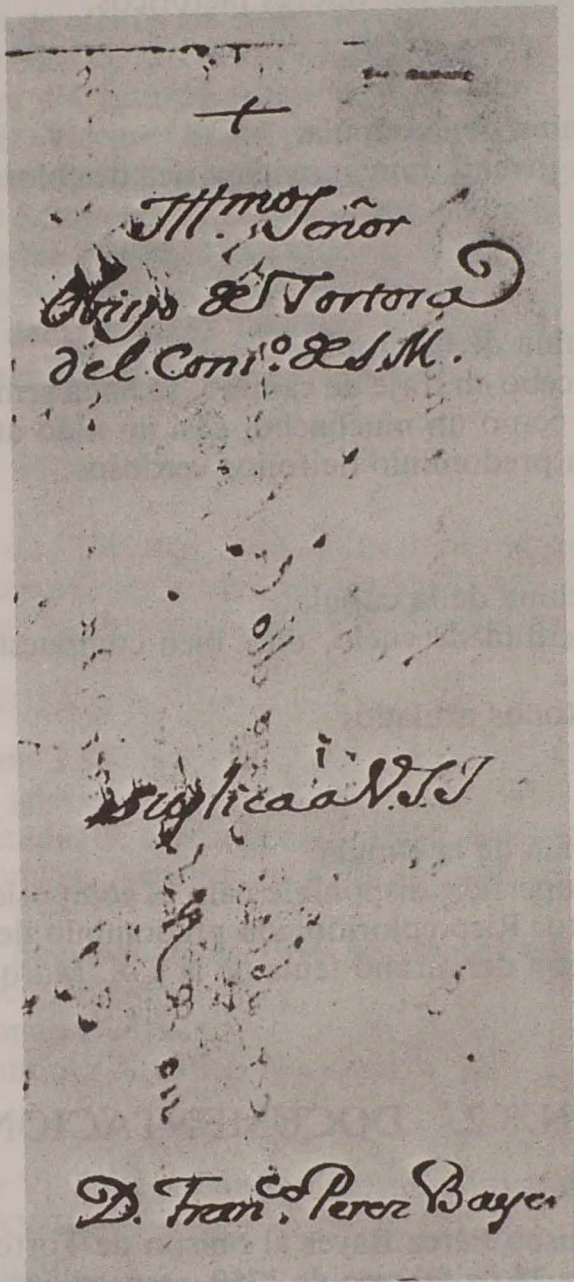 +
Ill.mo Señor
Obispo de Tortosa
del Cons.o de S.M.
suplica a V.S.I
D. Fran.co Perez Bayer